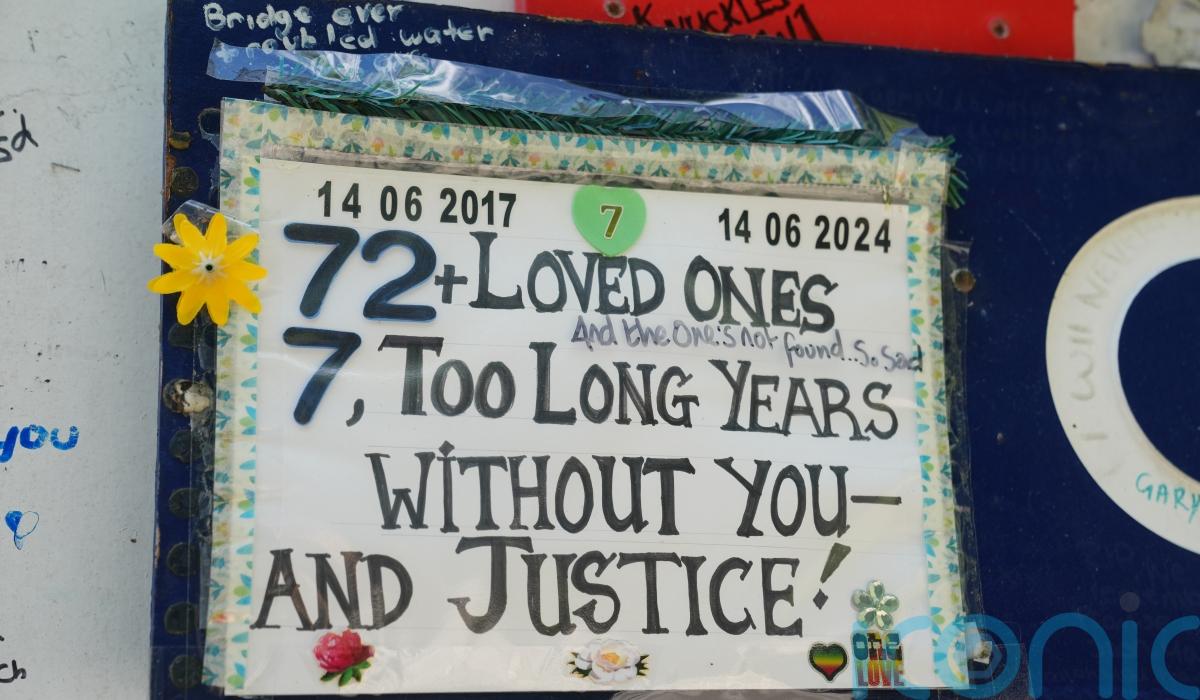 Bridge over
troubled water
KNUCKLES
sd
14 06 2017
7
14 06 2024
72+LOVED ONES
And the One's not found...So Sad
7, TOO LONG YEARS
WITHOUT YOU—
AND JUSTICE!
ONE
LOVE
you
ch
I WILL NEVER
GARY
ronic